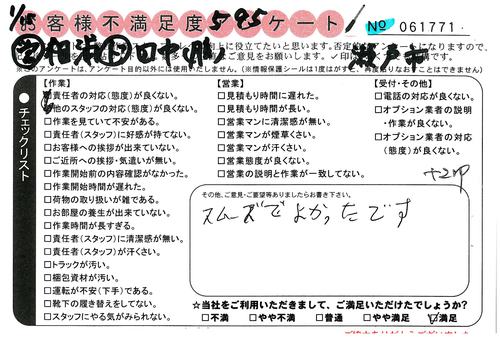 1/15 お客様不満足度5925ケート! № 061771
相 田中 瀬戸市
上に役立てたいと思います。否定的 アンケートになりますので、
ご意見をお願いします。✓印
※このアンケートは、アンケート目的以外には使用いたしません。(※情報保護シールは1度はがすと、再度貼りなおすことはできません)
●チェックリスト
【作業】
責任者の対応(態度)が良くない。
他のスタッフの対応(態度)が良くない。
□作業を見ていて不安がある。
□責任者(スタッフ)に好感が持てない。
□お客様への挨拶が出来ていない。
□ご近所への挨拶・気遣いが無い。
□作業開始前の内容確認がなかった。
□作業開始時間が遅れた。
□荷物の取り扱いが雑である。
□お部屋の養生が出来ていない。
□作業時間が長すぎる。
□責任者(スタッフ)に清潔感が無い。
□責任者(スタッフ)が汗くさい。
□トラックが汚い。
□梱包資材が汚い。
□運転が不安(下手)である。
□靴下の履き替えをしてない。
□スタッフにやる気がみられない。
【営業】
□見積もり時間に遅れた。
□見積もり時間が長い。
□営業マンに清潔感が無い。
□営業マンが煙草くさい。
□営業マンが汗くさい。
□営業態度が良くない。
□営業の説明と作業が一致してない。
【受付・その他】
□電話の対応が良くない。
□オプション業者の説明
・作業が良くない。
□オプション業者の対応
(態度)が良くない。
その他、ご意見・ご要望等ありましたらお書き下さい。
スムーズでよかったです
☆当社をご利用いただきまして、ご満足いただけたでしょうか?
□不満 □やや不満 □普通 □やや満足 ☑満足